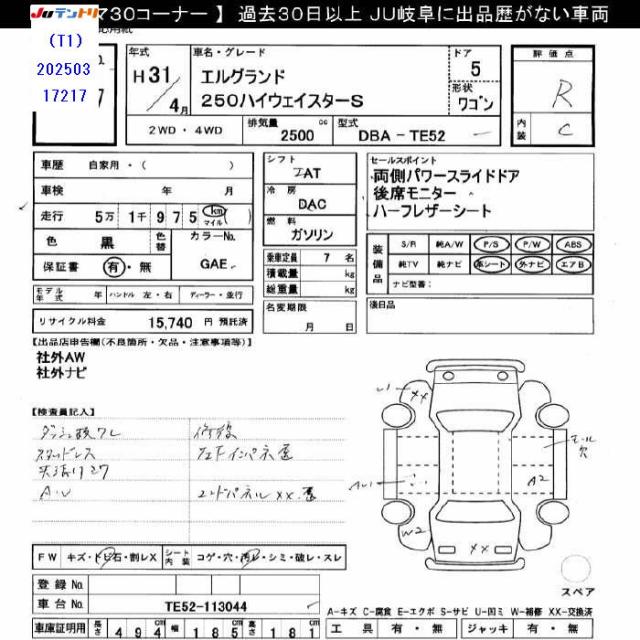 JUテントリ マ30コーナー 】 過去30日以上 JU岐阜に出品歴がない車両
(T1)
202503
17217
年式
H31/4月
車名・グレード
エルグランド
250ハイウェイスターS
ドア
5
形状
ワゴン
評価点
R
内装
C
2WD ・ 4WD
排気量
2500 cc
型式
DBA - TE52
車歴 自家用・( )
車検 年 月
走行 5万1千975 km マイル
色 黒 色替 カラーNo. GAE
保証書 有・無
モデル年式 年 ハンドル 左・右 ディーラー・並行
リサイクル料金 15,740 円 預託済
シフト
IAT
冷房
DAC
燃料
ガソリン
乗車定員 7 名
積載量 kg
総重量 kg
名変期限
月 日
セールスポイント
両側パワースライドドア
後席モニター
ハーフレザーシート
装備品
S/R 純A/W P/S P/W ABS
純TV 純ナビ 革シート 外ナビ エアB
ナビ型番:
後日品
【出品店申告欄(不良箇所・欠品・注意事項等)】
社外AW
社外ナビ
【検査員記入】
スタッドレス
A・U
修復
エンドパネルXX
XX
モール欠
A2
W2
XX
FW キズ・トビ石・割レX シート内装 コゲ・穴・汚レ・シミ・破レ・スレ
登録 No.
車台 No. TE52-113044
車庫証明用 長さ 494 cm 幅 185 cm 高さ 181 cm
スペア
A-キズ C-腐食 E-エクボ S-サビ U-凹ミ W-補修 XX-交換済
工具 有・無 ジャッキ 有・無